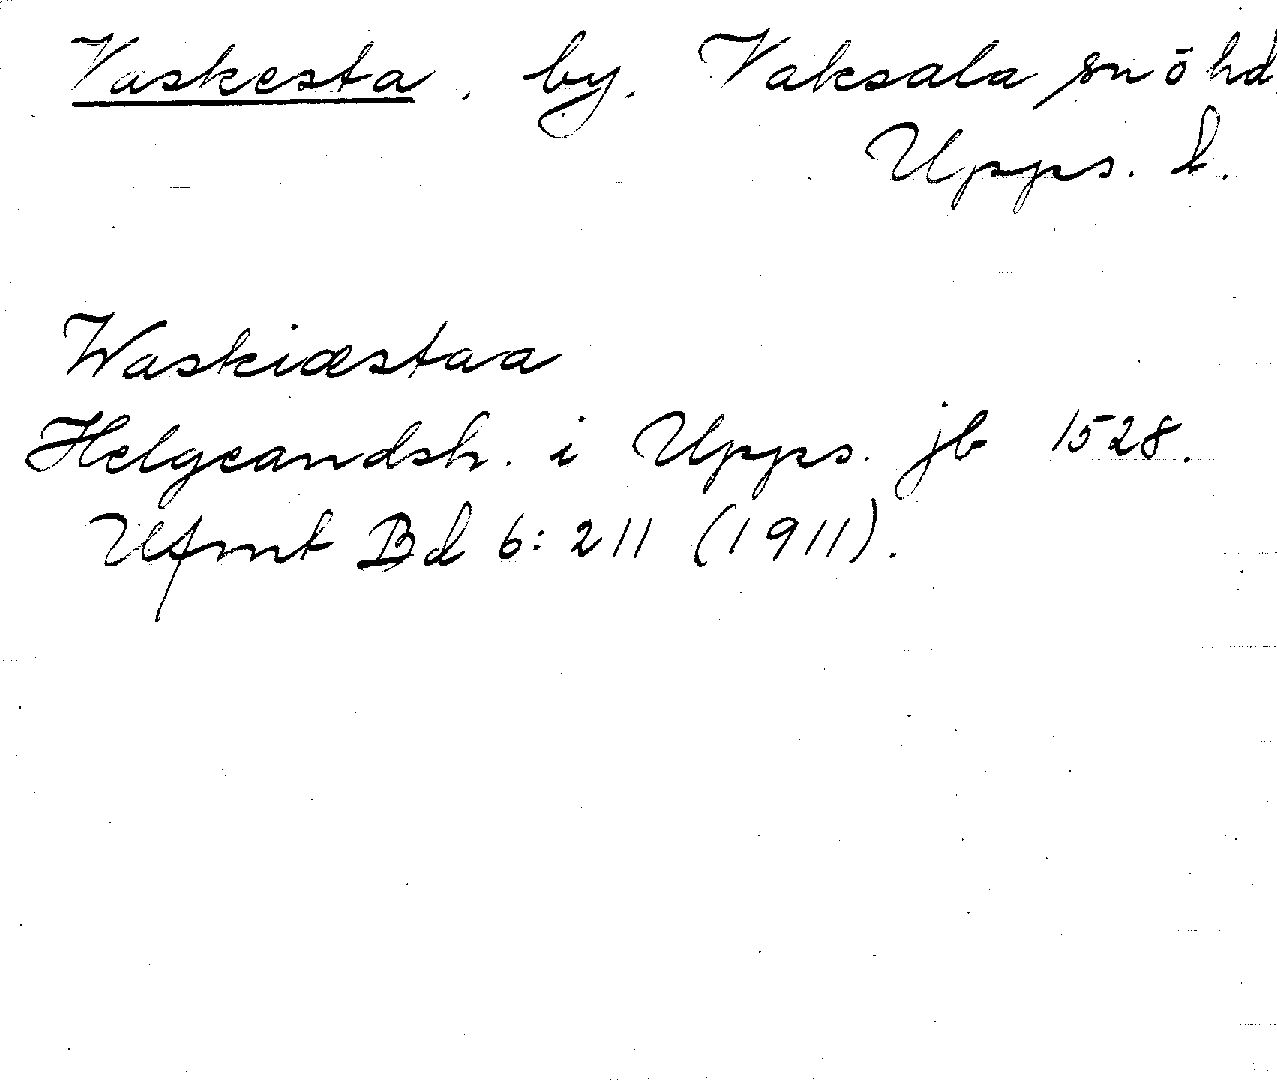 Vaskesta, by. Vaksala sn ō hd.
Upps. l.
Waskiæstaa
Helgeandsh. i Upps. jb 1528.
Ufmt Bd 6:211 (1911).